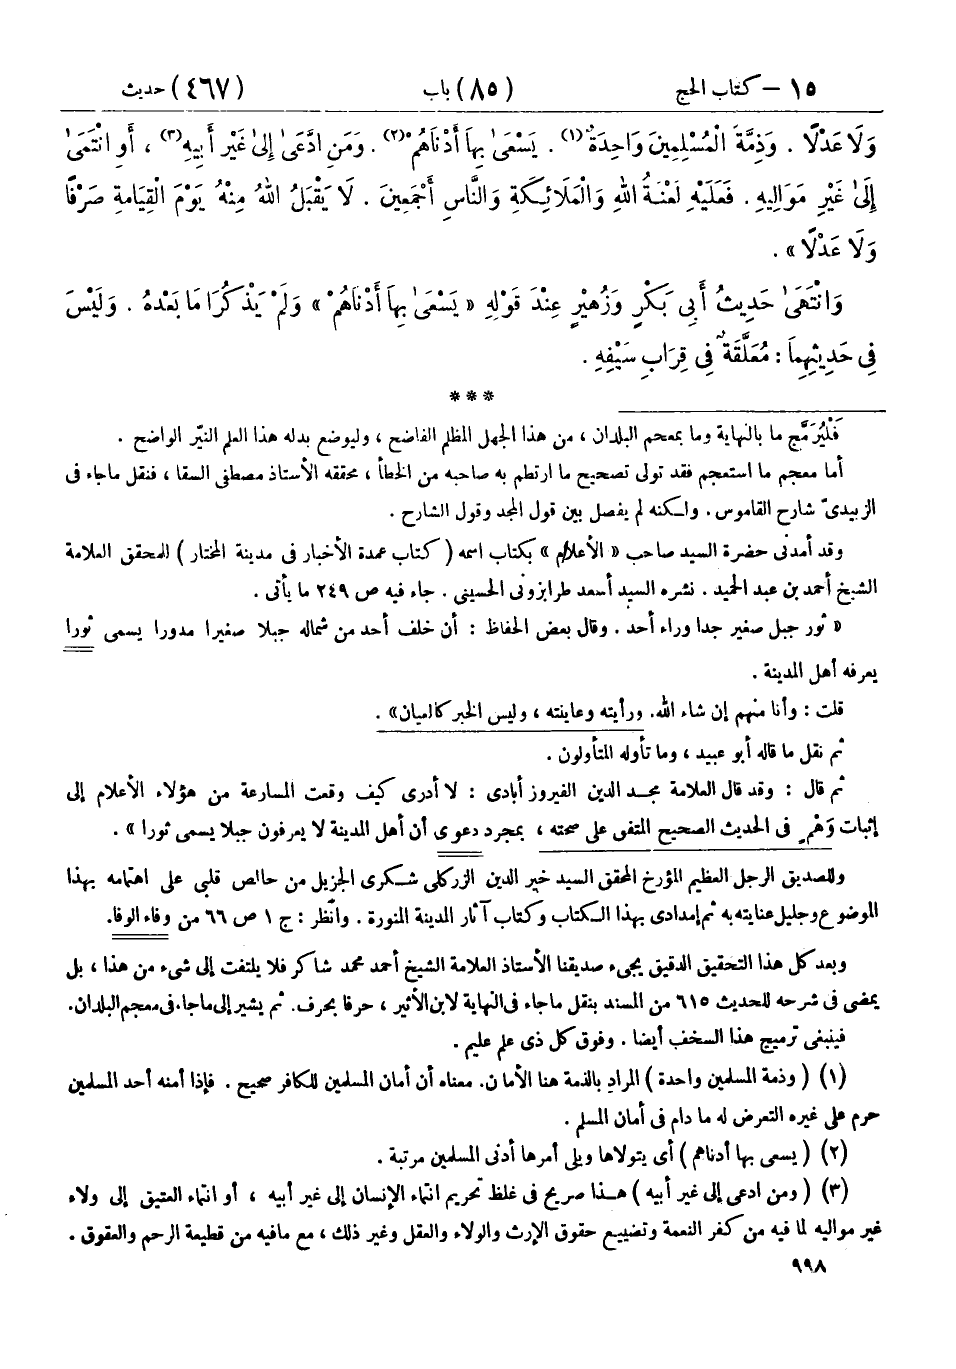 ١٥ – كتاب الحج (٨٥) باب (٤٦٧) حديث
وَلَا عَدْلًا . وَذِمَّةُ الْمُسْلِمِينَ وَاحِدَةٌ(١) . يَسْعَىٰ بِهَا أَدْنَاهُمْ(٢) . وَمَنِ ادَّعَىٰ إِلَىٰ غَيْرِ أَبِيهِ(٣) ، أَوِ انْتَمَىٰ
إِلَىٰ غَيْرِ مَوَالِيهِ . فَعَلَيْهِ لَعْنَةُ اللهِ وَالْمَلَائِكَةِ وَالنَّاسِ أَجْمَعِينَ . لَا يَقْبَلُ اللهُ مِنْهُ يَوْمَ الْقِيَامَةِ صَرْفًا
وَلَا عَدْلًا » .
وَانْتَهَىٰ حَدِيثُ أَبِي بَكْرٍ وَزُهَيْرٍ عِنْدَ قَوْلِهِ « يَسْعَىٰ بِهَا أَدْنَاهُمْ » وَلَمْ يَذْكُرَا مَا بَعْدَهُ . وَلَيْسَ
فِي حَدِيثِهِمَا : مُعَلَّقَةٌ فِي قِرَابِ سَيْفِهِ .
***
فَلْيُرَمَّج ما بالنهاية وما بمعجم البلدان ، من هذا الجهل المظلم الفاضح ، وليوضع بدله هذا العلم النيّر الواضح .
أما معجم ما استعجم فقد تولى تصحيح ما ارتطم به صاحبه من الخطأ ، محققه الأستاذ مصطفى السقا ، فنقل ماجاء فى
الزبيدىّ شارح القاموس . ولكنه لم يفصل بين قول المجد وقول الشارح .
وقد أمدنى حضرة السيد صاحب « الأعلام » بكتاب اسمه ( كتاب عمدة الأخبار فى مدينة المختار ) للمحقق العلامة
الشيخ أحمد بن عبد الحميد . نشره السيد أسعد طرابزونى الحسينى . جاء فيه ص ٢٤٩ ما يأتى .
« ثور جبل صغير جدا وراء أحد . وقال بعض الحفاظ : أن خلف أحد من شماله جبلا صغيرا مدورا يسمى ثورا
يعرفه أهل المدينة .
قلت : وأنا منهم إن شاء الله. ورأيته وعاينته ، وليس الخبر كالعيان» .
ثم نقل ما قاله أبو عبيد ، وما تأوله المتأولون .
ثم قال : وقد قال العلامة مجد الدين الفيروز أبادى : لا أدرى كيف وقعت المسارعة من هؤلاء الأعلام إلى
إثبات وَهْمٍ فى الحديث الصحيح المتفق على صحته ، بمجرد دعوى أن أهل المدينة لا يعرفون جبلا يسمى ثورا » .
وللصديق الرجل العظيم المؤرخ المحقق السيد خير الدين الزركلى شكرى الجزيل من خالص قلبى على اهتمامه بهذا
الموضوع وجليل عنايته به ثم إمدادى بهذا الكتاب وكتاب آثار المدينة المنورة . وانظر : ج ١ ص ٦٦ من وفاء الوفا.
وبعد كل هذا التحقيق الدقيق يجىء صديقنا الأستاذ العلامة الشيخ أحمد محمد شاكر فلا يلتفت إلى شىء من هذا ، بل
يمضى فى شرحه للحديث ٦١٥ من المسند بنقل ماجاء فى النهاية لابن الأثير ، حرفا بحرف. ثم يشير إلى ماجاء فى معجم البلدان.
فينبغى ترميج هذا السخف أيضا . وفوق كل ذى علم عليم .
(١) ( وذمة المسلمين واحدة ) المراد بالذمة هنا الأمان. معناه أن أمان المسلمين للكافر صحيح . فإذا أمنه أحد المسلمين
حرم على غيره التعرض له ما دام فى أمان المسلم .
(٢) ( يسعى بها أدناهم ) أى يتولاها ويلى أمرها أدنى المسلمين مرتبة .
(٣) ( ومن ادعى إلى غير أبيه ) هذا صريح فى غلظ تحريم انتماء الإنسان إلى غير أبيه ، أو انتماء العتيق إلى ولاء
غير مواليه لما فيه من كفر النعمة وتضييع حقوق الإرث والولاء والعقل وغير ذلك ، مع مافيه من قطيعة الرحم والعقوق .
٩٩٨